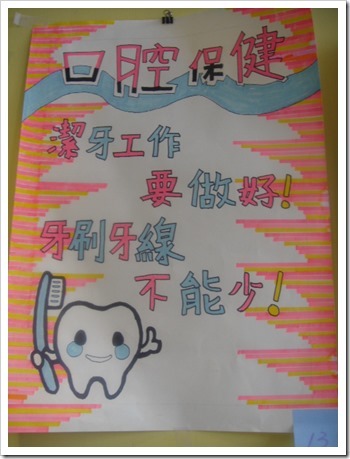 口腔保健
潔牙工作
要做好！
牙刷牙線
不能少！
13